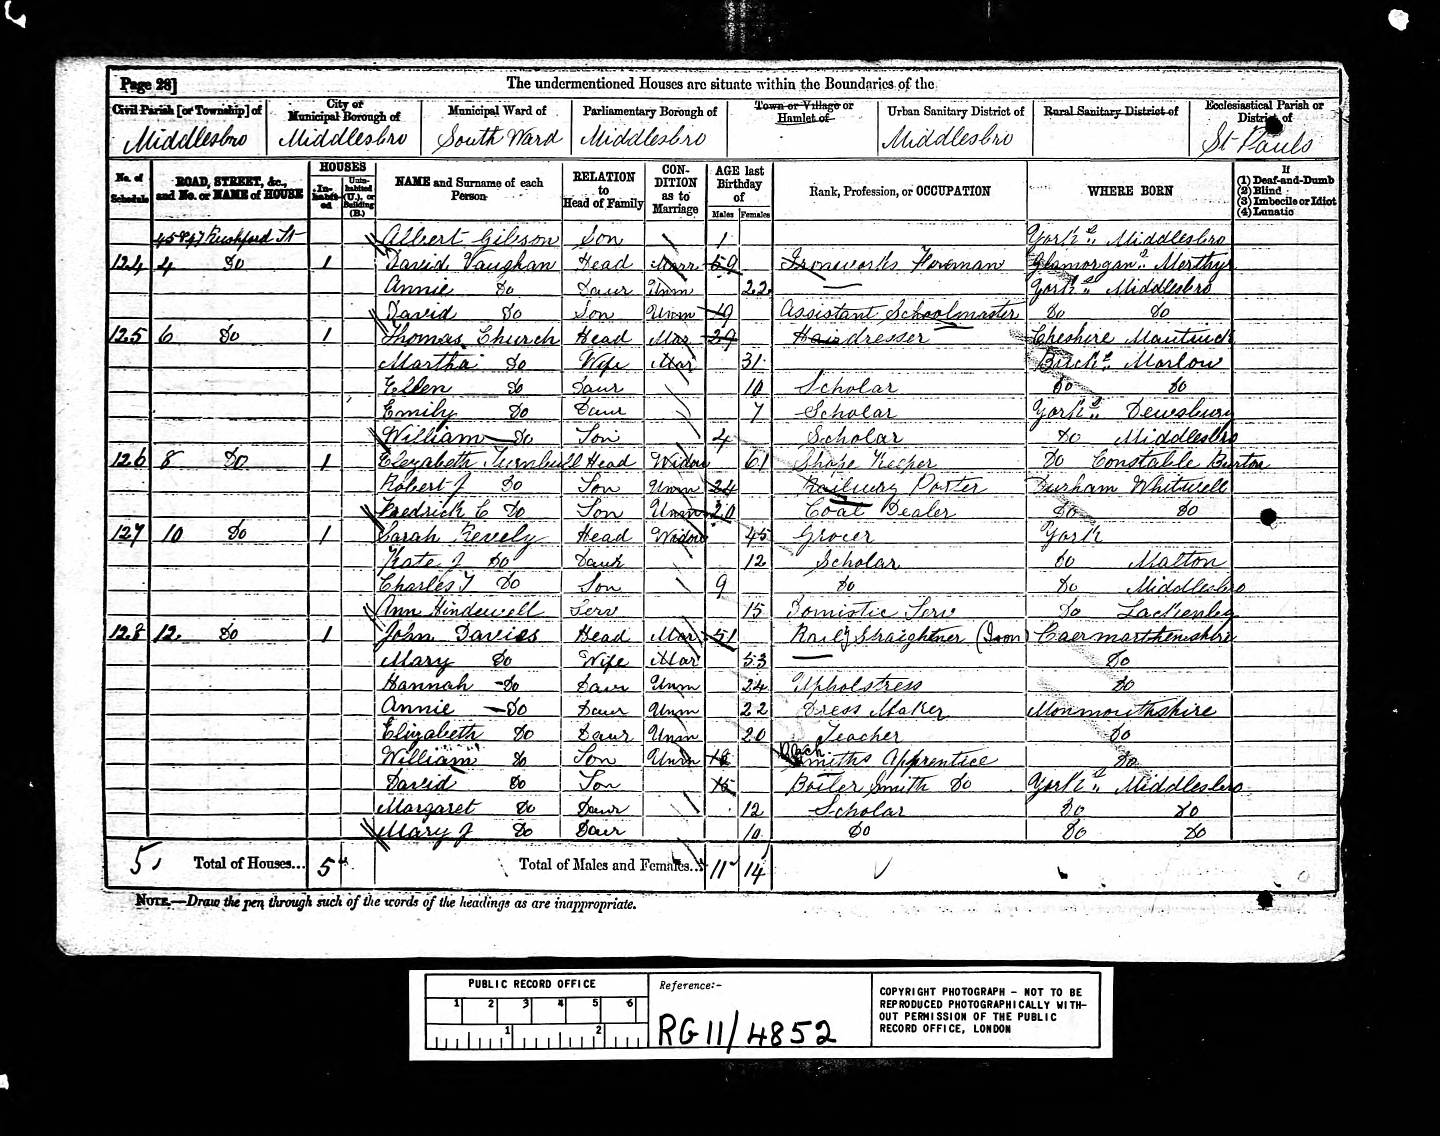 Page 28]
The undermentioned Houses are situate within the Boundaries of the
Civil Parish [or Township] of
City or Municipal Borough of
Municipal Ward of
Parliamentary Borough of
Town or Village or Hamlet of
Urban Sanitary District of
Rural Sanitary District of
Ecclesiastical Parish or District of
Middlesbro Middlesbro South Ward Middlesbro Middlesbro St Pauls
No. of Schedule
ROAD, STREET, &c., and No. or NAME of HOUSE
HOUSES
Inhabited
Uninhabited (U.), or Building (B.)
NAME and Surname of each Person
RELATION to Head of Family
CONDITION as to Marriage
AGE last Birthday of
Males Females
Rank, Profession, or OCCUPATION
WHERE BORN
If
(1) Deaf-and-Dumb
(2) Blind
(3) Imbecile or Idiot
(4) Lunatic
Rushford St Albert Gibson Son 1 York Middlesbro
124 4 Do 1 David Vaughan Head Marr 59 Ironworks Foreman Glamorgan Merthyr
Annie Do Daur Unm 22 York Middlesbro
David Do Son Unm 19 Assistant Schoolmaster Do Do
125 6 Do 1 Thomas Church Head Mar 29 Hairdresser Cheshire
Martha Do Wife Mar 31 Marlow
Ellen Do Daur 10 Scholar Do Do
Emily Do Daur 7 Scholar York Dewsbury
William Do Son 4 Scholar Do Middlesbro
126 8 Do 1 Elezabeth Turnbull Head Widow 61 Shope Keeper Do Constable Burton
Robert J Do Son Unm 24 Railway Porter Durham Whitwell
Fredrick E Do Son Unm 20 Coal Dealer Do Do
127 10 Do 1 Sarah Revely Head Widow 45 Grocer York
Kate J Do Daur 12 Scholar Do Malton
Charles T Do Son 9 Do Do Middlesbro
Ann Hindewell Serv 15 Domistic Serv Do Lackenby
128 12 Do 1 John Davies Head Mar 51 Rail Straightner (Iron) Caermarthenshire
Mary Do Wife Mar 53 Do
Hannah Do Daur Unm 24 Upholstress Do
Annie Do Daur Unm 22 Dress Maker Monmouthshire
Elizabeth Do Daur Unm 20 Teacher Do
William Do Son Unm 18 Smiths Apprentice Do
David Do Son 15 Boiler Smith Do York Middlesbro
Margaret Do Daur 12 Scholar Do Do
Mary J Do Daur 10 Do Do Do
5 Total of Houses... 5 Total of Males and Females... 11 14
NOTE.—Draw the pen through such of the words of the headings as are inappropriate.
PUBLIC RECORD OFFICE
1 2 3 4 5 6
1 2
Reference:-
RG 11/4852
COPYRIGHT PHOTOGRAPH - NOT TO BE
REPRODUCED PHOTOGRAPHICALLY WITH-
OUT PERMISSION OF THE PUBLIC
RECORD OFFICE, LONDON